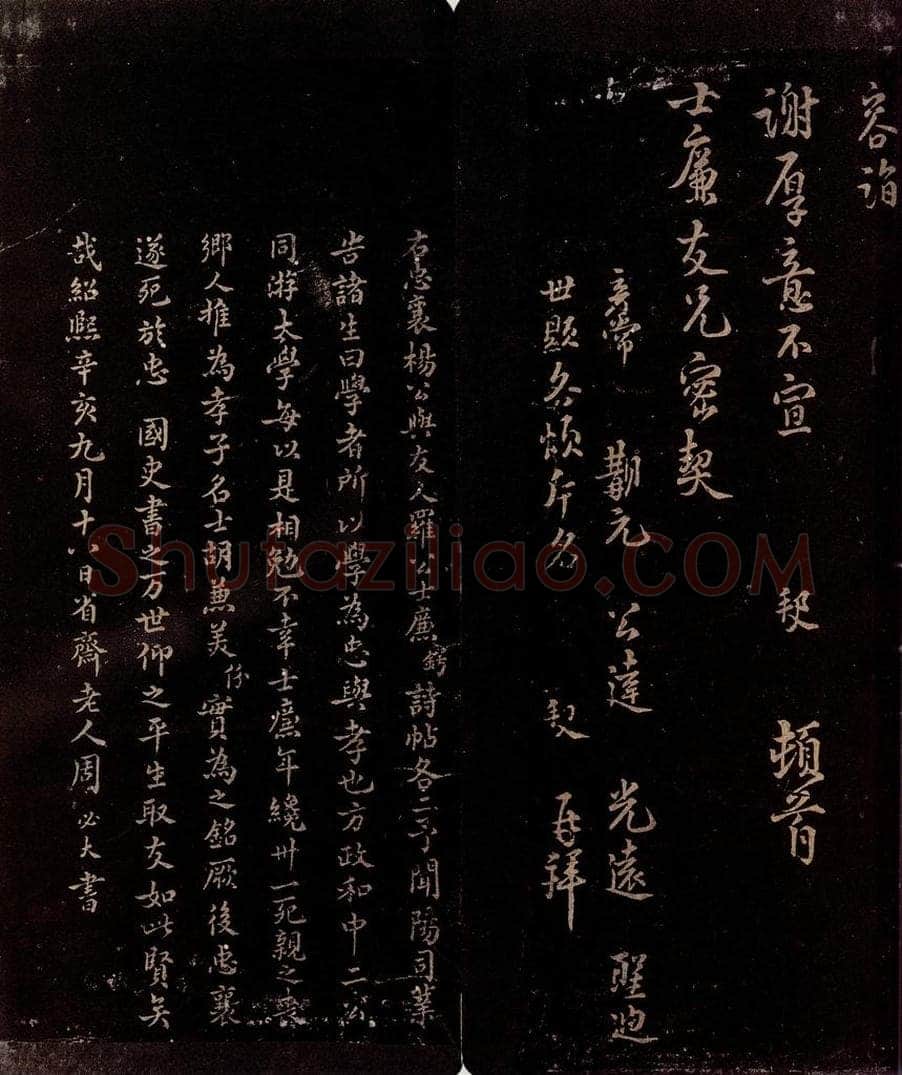 容詣
謝厚意不宣 頓首
士廉友兄密契
彥常 元 公達 光遠
世顯各煩 名 再拜
右忠襄楊公與友人羅公士廉鍔詩帖各二予聞陽司業
告諸生曰學者所以學為忠與孝也方政和中二公
同游太學每以是相勉不幸士廉年纔卅一死親之喪
鄉人推為孝子名士胡兼美份實為之銘厥後忠襄
遂死於忠 國史書之万世仰之平生取友如此賢矣
哉紹熙辛亥九月十八日省齋老人周必大書
Shufaziliao.com